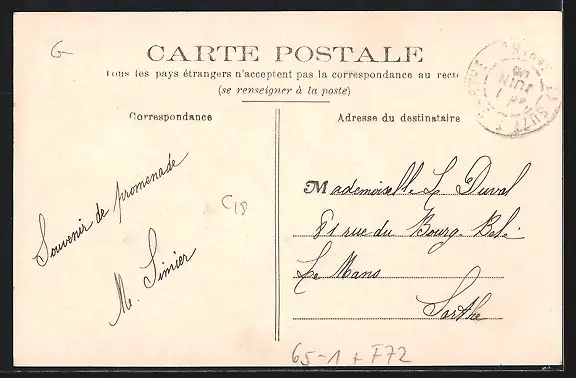 G
CARTE POSTALE
Tous les pays étrangers n'acceptent pas la correspondance au recto
(se renseigner à la poste)
Correspondance
Adresse du destinataire
Souvenir de promenade
M. Simier
C18
Mademoiselle L Duval
81 rue du Bourg-Belé
Le Mans
Sarthe
65-1 + F72
JUIN